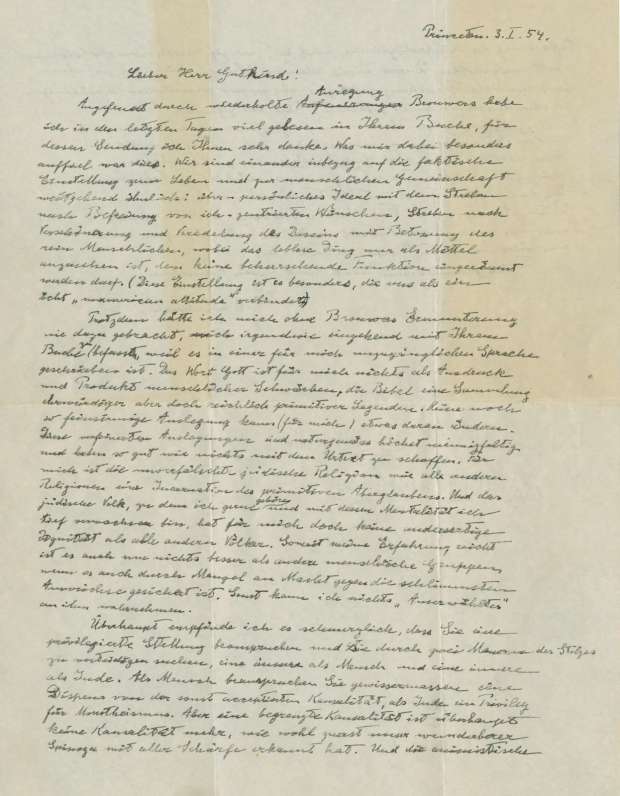 Princeton. 3. I. 54.
Lieber Herr Gutkind!
Anregung
Angefeuert durch wiederholte Brouwers habe
ich in den letzten Tagen viel gelesen in Ihrem Buche, für
dessen Sendung ich Ihnen sehr danke. Was mir dabei besonders
auffiel war dies. Wir sind einander inbezug auf die faktische
Einstellung zum Leben und zur menschlichen Gemeinschaft
weitgehend ähnlich: über-persönliches Ideal mit dem Streben
nach Befreiung von ich-zentrierten Wünschen, Streben nach
Verschönerung und Veredelung des Daseins mit Betonung des
rein Menschlichen, wobei das leblose Ding nur als Mittel
anzusehen ist, dem keine beherrschende Funktion eingeräumt
werden darf. (Diese Einstellung ist es besonders, die uns als ein
echt „unamerican attitude" verbindet)
Trotzdem hätte ich mich ohne Brouwers Ermunterung
nie dazu gebracht, mich irgendwie eingehend mit Ihrem
Buche zu befassen, weil es in einer für mich unzugänglichen Sprache
geschrieben ist. Das Wort Gott ist für mich nichts als Ausdruck
und Produkt menschlicher Schwächen, die Bibel eine Sammlung
ehrwürdiger aber doch reichlich primitiver Legenden. Keine noch
so feinsinnige Auslegung kann (für mich) etwas daran ändern.
Diese verfeinerten Auslegungen sind naturgemäss höchst mannigfaltig
und haben so gut wie nichts mit dem Urtext zu schaffen. Für
mich ist die unverfälschte jüdische Religion wie alle anderen
Religionen eine Incarnation des primitiven Aberglaubens. Und das
jüdische Volk, zu dem ich gerne gehöre und mit dessen Mentalität ich
tief verwachsen bin, hat für mich doch keine andersartige
Dignität als alle anderen Völker. Soweit meine Erfahrung reicht
ist es auch um nichts besser als andere menschliche Gruppen,
wenn es auch durch Mangel an Macht gegen die schlimmsten
Auswüchse gesichert ist. Sonst kann ich nichts „Auserwähltes"
an ihm wahrnehmen.
Überhaupt empfinde ich es schmerzlich, dass Sie eine
privilegierte Stellung beanspruchen und sie durch zwei Mauern des Stolzes
zu verteidigen suchen, eine äussere als Mensch und eine innere
als Jude. Als Mensch beanspruchen Sie gewissermassen eine
Dispens von der sonst acceptierten Kausalität, als Jude ein Privileg
für Monotheismus. Aber eine begrenzte Kausalität ist überhaupt
keine Kausalität mehr, wie wohl zuerst unser wunderbarer
Spinoza mit aller Schärfe erkannt hat. Und die animistische